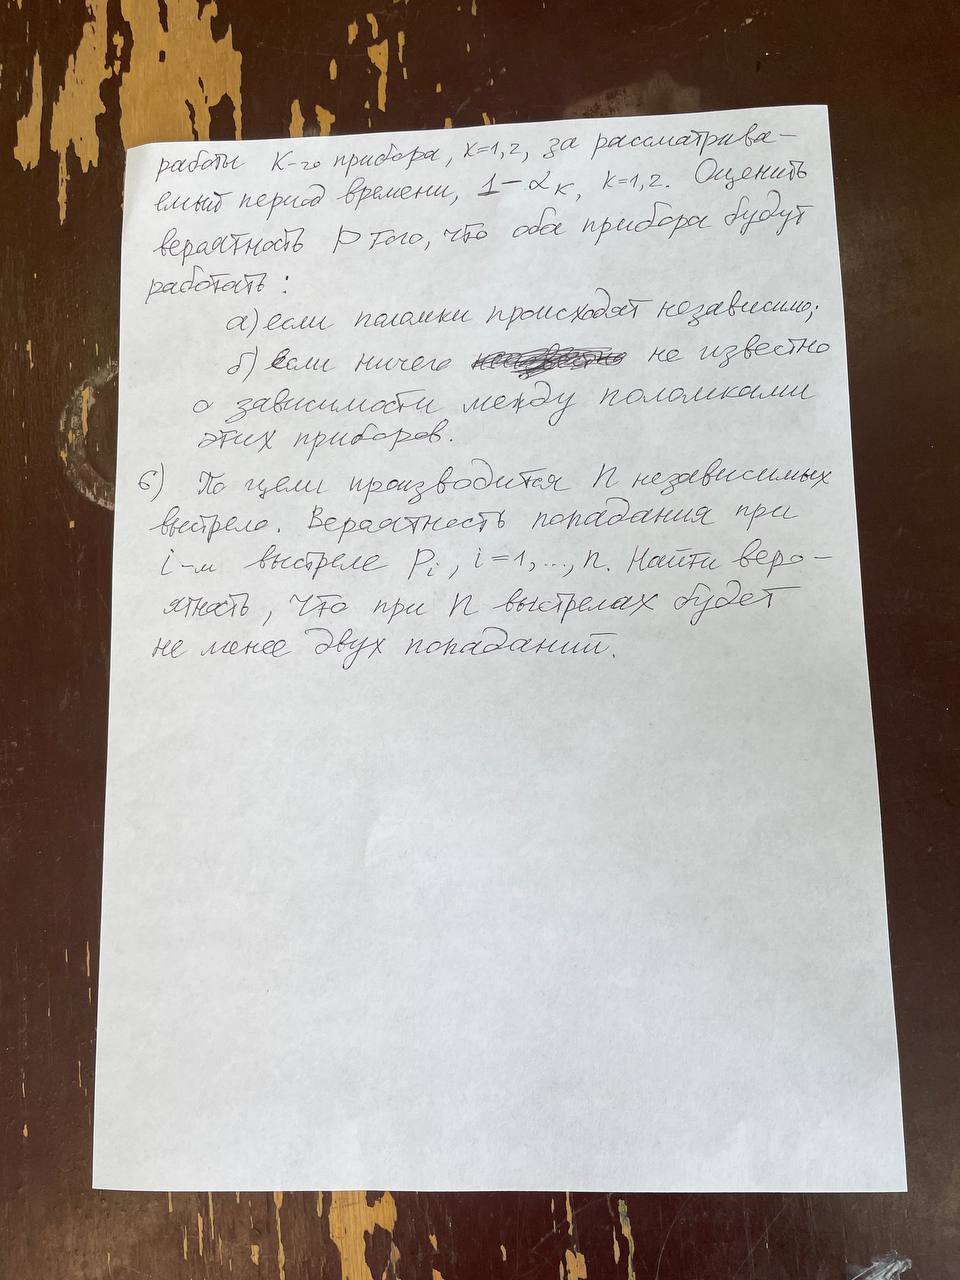 работы к-го прибора, к=1,2, за рассматрива-
емый период времени, 1-αк, к=1,2. Оценить
вероятность р того, что оба прибора будут
работать:
а) если поломки происходят независимо;
б) если ничего не известно
о зависимости между поломками
этих приборов.
6) По цели производится n независимых
выстрело. Вероятность попадания при
i-м выстреле pi, i=1,...,n. Найти веро-
ятность, что при n выстрелах будет
не менее двух попаданий.